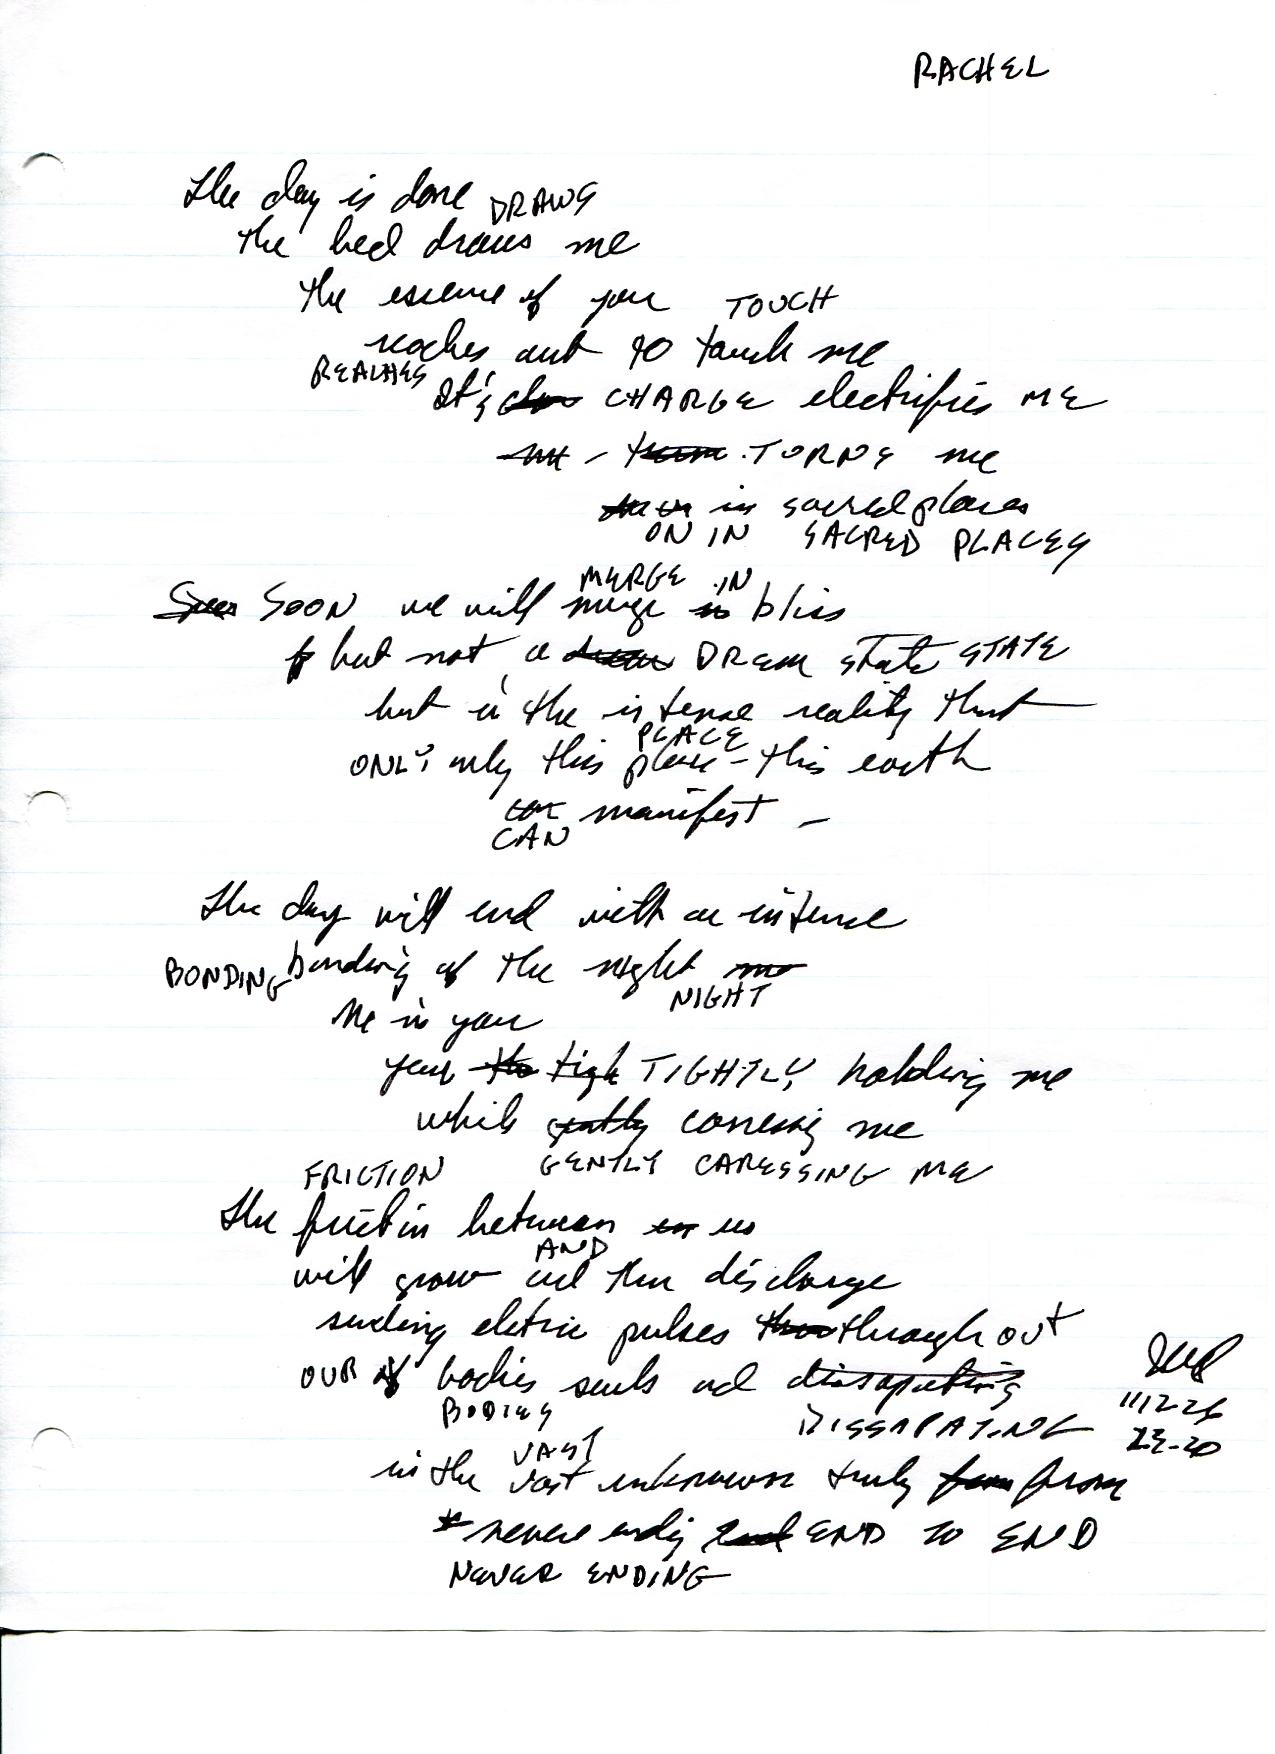 RACHEL
The day is done
DRAWS
the bed draws me
the essence of you
TOUCH
reaches out to touch me
REACHES
It's CHARGE electrifies ME
TURNS me
in sacred places
ON IN SACRED PLACES
MERGE IN
SOON we will merge in bliss
but not a DREAM state STATE
but in the intense reality that
PLACE
ONLY only this place - this earth
can manifest -
CAN
The day will end with an intense
BONDING bonding of the night
NIGHT
Me in you
your TIGHTLY holding me
while gently caressing me
FRICTION GENTLY CARESSING ME
The friction between us
AND
will grow and then discharge
sending eletric pulses through out
OUR bodies souls and dissapating
BODIES DISSAPATING
VAST
in the vast unknown truly from
never ending END TO END
NEVER ENDING
11-12-26
23-20